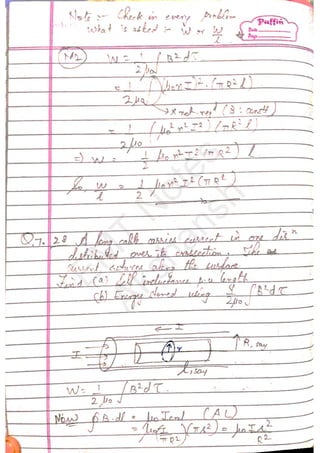 Note :- Check in every problem
what is asked :- W or W/l
Puffin
Date
Page
M2) W = 1/2μ0 ∫ B² dτ
= 1/2μ0 (μ0nI)² . (πR² l)
→ * not reqd (B : const)
= 1/2μ0 (μ0² n² I²) (πR² l)
=) W = 1/2 μ0 n² I² (πR²) l
So, W/l = 1/2 μ0 n² I² (πR²)
Q.7. 28 A long cable carries current in one dirⁿ
distributed over its crosssection. The
current returns along the surface.
Find (a) Self inductance p.u. length
(b) Energy stored using 1/2μ0 ∫B² dτ
← I
I r R, say
l, say
W = 1/2μ0 ∫ B² dτ.
Now ∮ B.dl = μ0 Iencl (AL)
= μ0 I/(πR²) (πr²) = μ0 I r²/R²